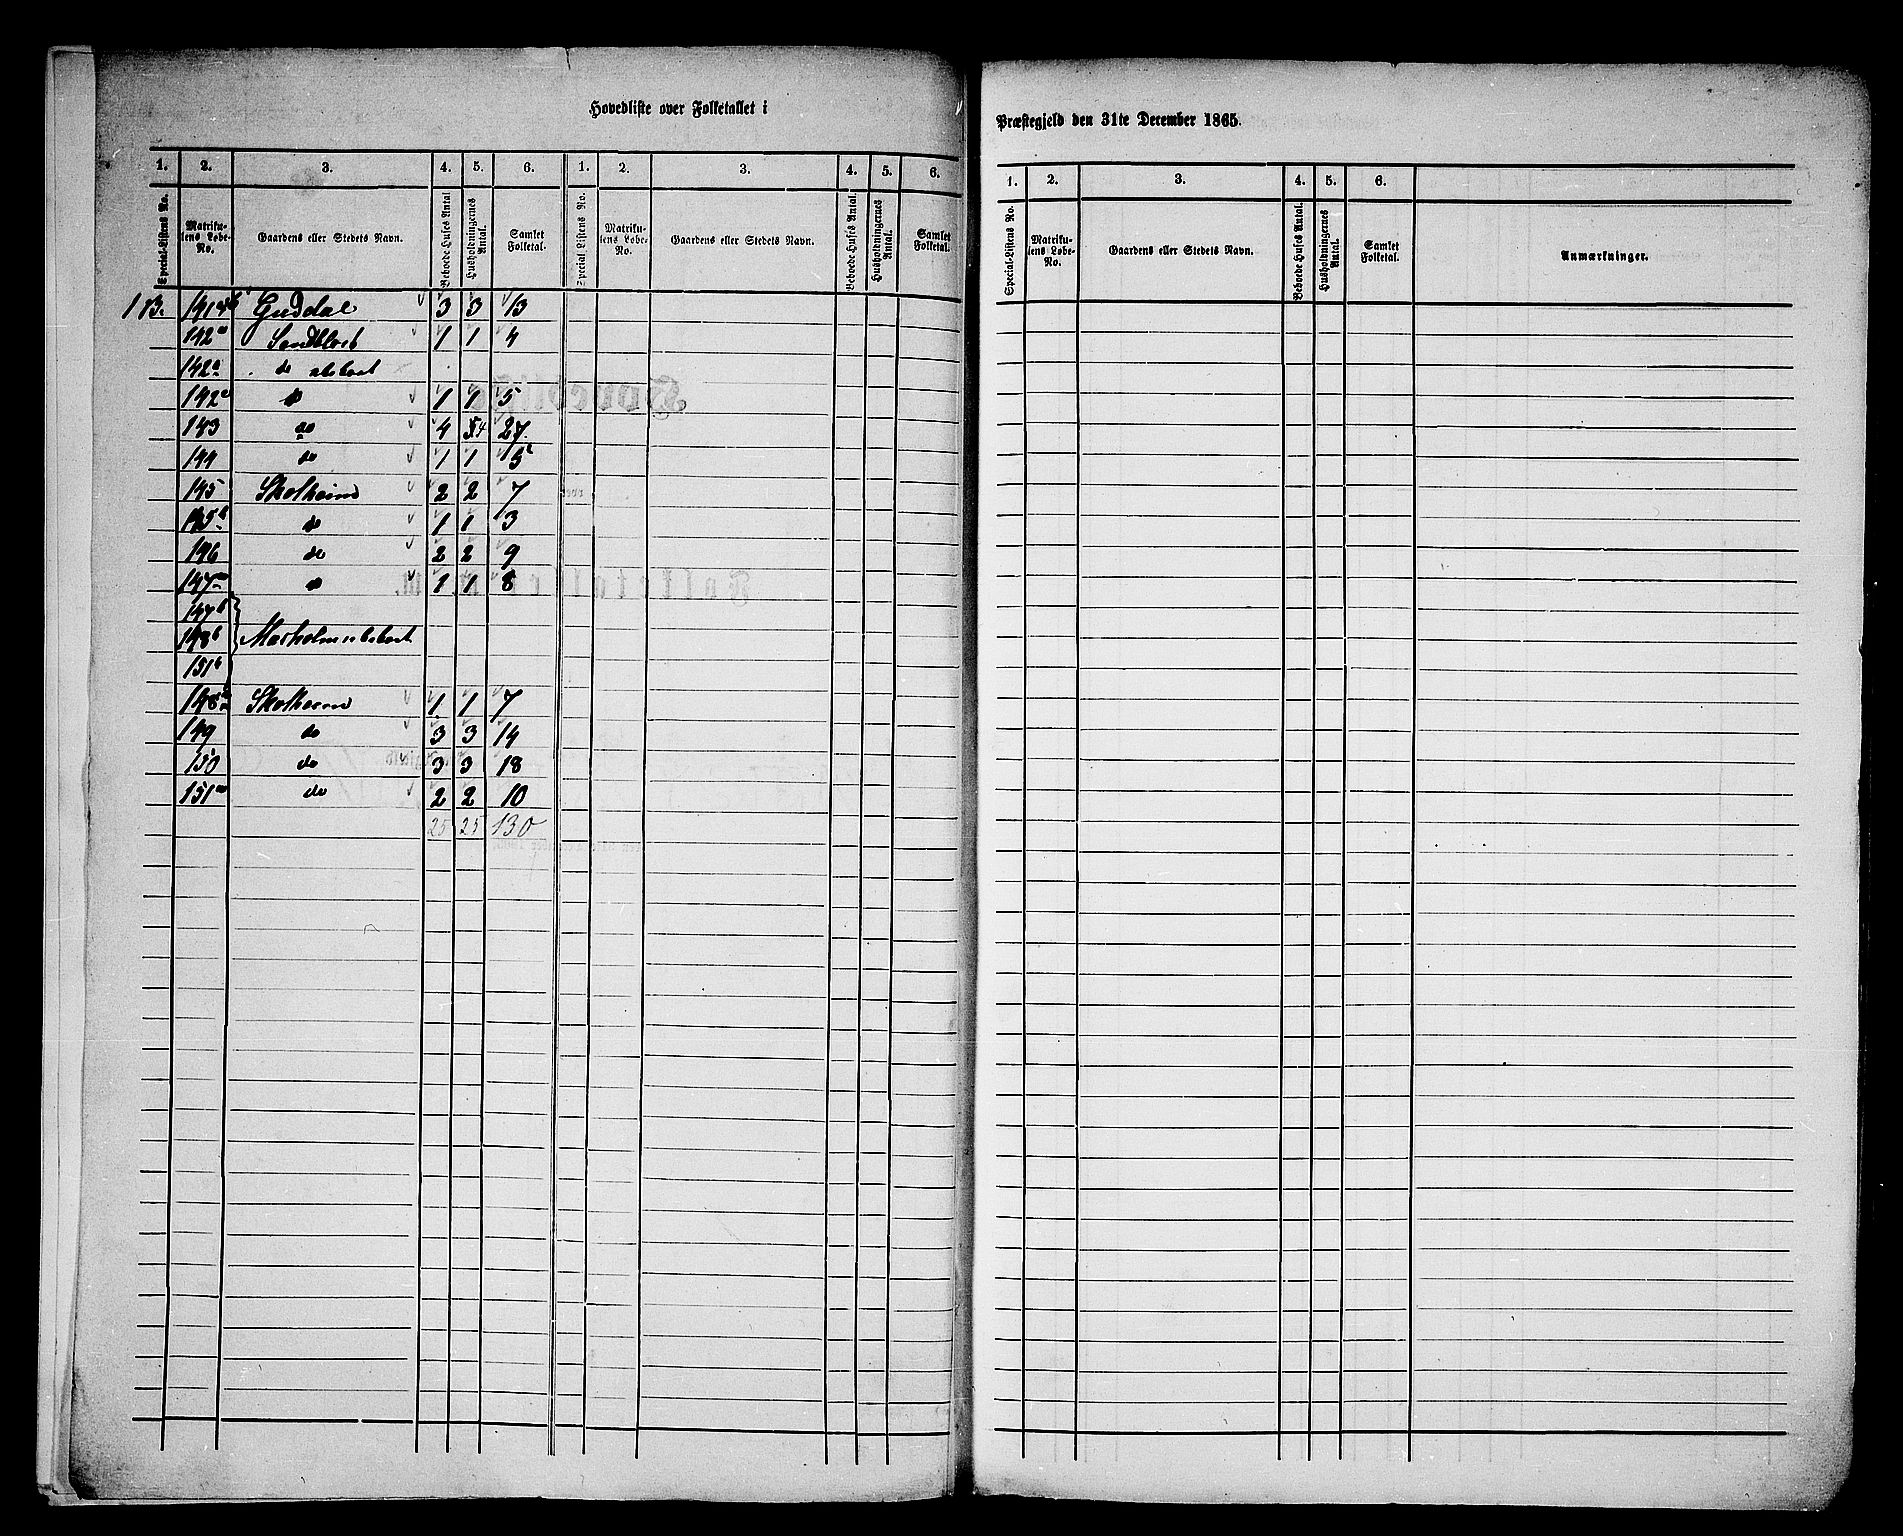 Hovedliste over Folketallet i
1. 2. 3. 4. 5. 6. 1. 2. 3. 4. 5. 6.
Special-Listens No. Matrikulens Løbe-No. Gaardens eller Stedets Navn. Beboede Huses Antal. Husholdningernes Antal. Samlet Folketal. Special-Listens No. Matrikulens Løbe-No. Gaardens eller Stedets Navn. Beboede Huses Antal. Husholdningernes Antal. Samlet Folketal.
113. 141 Guddal 3 3 13
142 1 1 4
142a do ubeboet
142c do 1 1 5
143 do 4 4 27.
144 do 1 1 5
145 Skolheim 2 2 7
145b do 1 1 3
146 do 2 2 9
147a do 1 1 8
147b
148b Marholm ubeboet
151b
148a Skolheim 1 1 7
149 do 3 3 14
150 do 3 3 18
151a do 2 2 10
25 25 130
Præstegjeld den 31te December 1865.
1. 2. 3. 4. 5. 6.
Special-Listens No. Matrikulens Løbe-No. Gaardens eller Stedets Navn. Beboede Huses Antal. Husholdningernes Antal. Samlet Folketal. Anmærkninger.